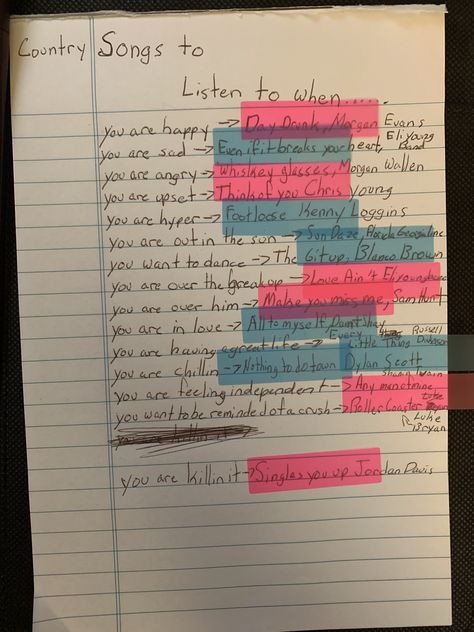 Country Songs to
Listen to when.....
you are happy → Day Drunk, Morgan Evans
you are sad → Even if it breaks your heart, Eli young Band
you are angry → Whiskey glasses, Morgan Wallen
you are upset → Think of you Chris young
you are hyper → Footloose Kenny Loggins
you are out in the sun → Sun Daze, Florida Georgia line
you want to dance → The Git up, Blanco Brown
you are over the breakup → Love Ain't Eli young band
you are over him → Make you miss me, Sam Hunt
you are in love → All to myself, Dan + Shay
you are having a great life → Every Little Thing Russell Dickerson
you are chillin → Nothing to do town Dylan Scott
you are feeling independent → Any man of mine Shania Twain
you want to be reminded of a crush → Roller Coaster Luke Bryan
you are killin it → Singles you up Jordan Davis